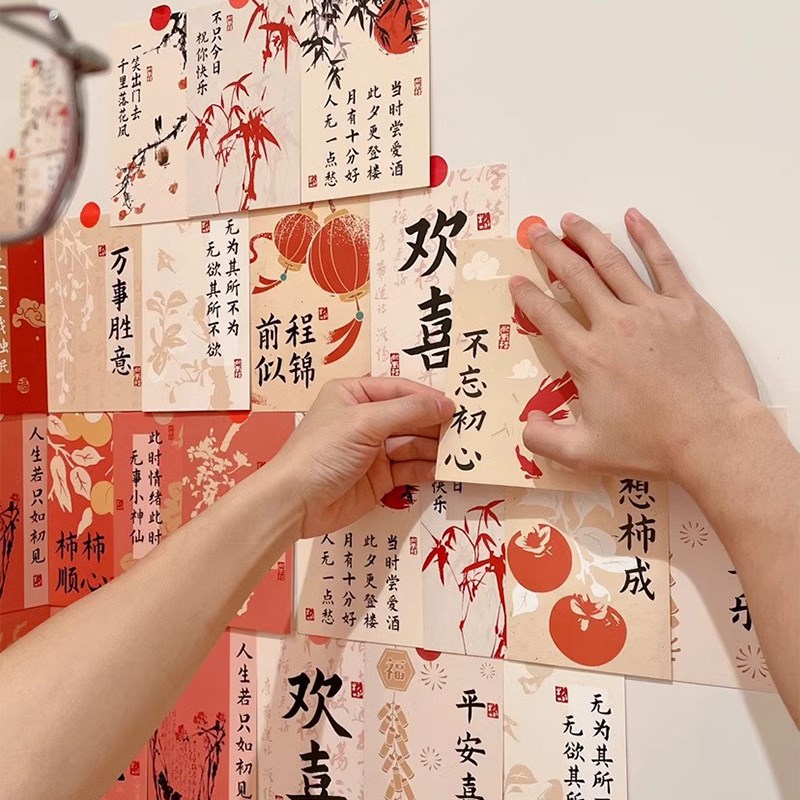 一笑出门去
千里落花风
不只今日
祝你快乐
当时尝爱酒
此夕更登楼
月有十分好
人无一点愁
万事胜意
无为其所不为
无欲其所不欲
前程
似锦
欢喜
不忘初心
人生若只如初见
柿柿
顺心
此时情绪此时
无事小神仙
当时尝爱酒
此夕更登楼
月有十分好
人无一点愁
日
快乐
想柿成
乐
人生若只如初见
欢喜
福
平安喜
无为其所
无欲其所